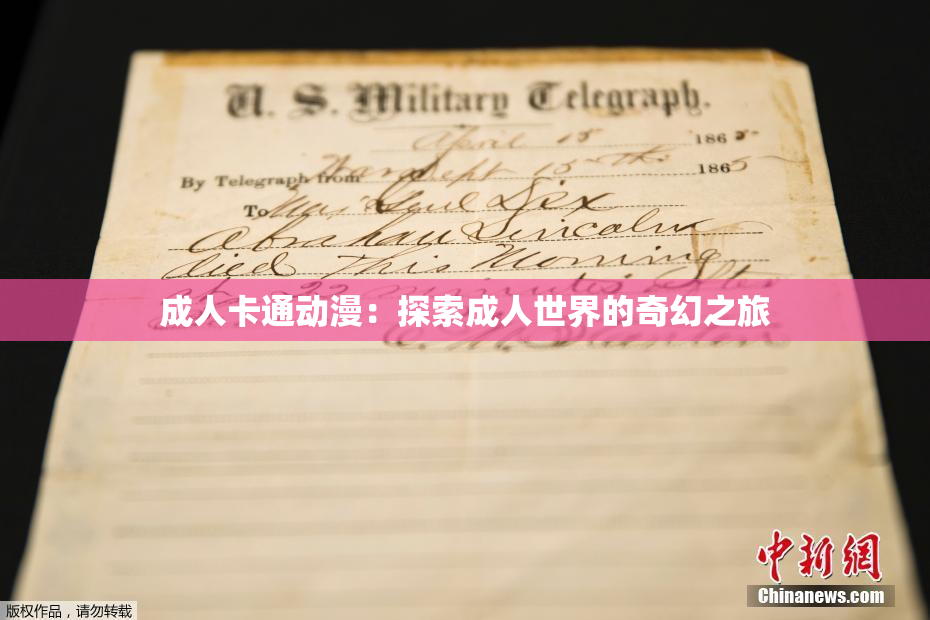 U. S. Military Telegraph.
April 15 1865
By Telegraph from 15 1865
To Maj Genl Dix
Abraham Lincoln
died This Morning
22 minutes after
成人卡通动漫：探索成人世界的奇幻之旅
中新网
Chinanews.com
版权作品，请勿转载